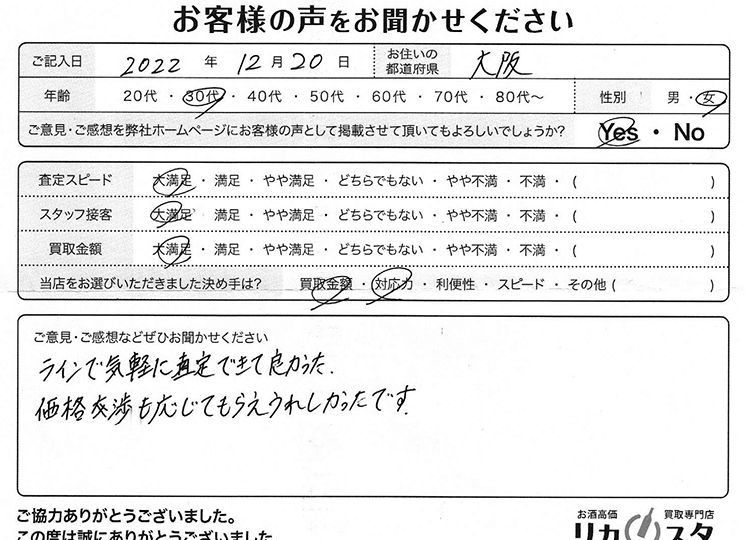 お客様の声をお聞かせください
ご記入日 2022 年 12 月 20 日 お住いの都道府県 大阪
年齢 20代 ・ 30代 ・ 40代 ・ 50代 ・ 60代 ・ 70代 ・ 80代〜 性別 男 ・ 女
ご意見・ご感想を弊社ホームページにお客様の声として掲載させて頂いてもよろしいでしょうか? Yes ・ No
査定スピード 大満足 ・ 満足 ・ やや満足 ・ どちらでもない ・ やや不満 ・ 不満 ・ ( )
スタッフ接客 大満足 ・ 満足 ・ やや満足 ・ どちらでもない ・ やや不満 ・ 不満 ・ ( )
買取金額 大満足 ・ 満足 ・ やや満足 ・ どちらでもない ・ やや不満 ・ 不満 ・ ( )
当店をお選びいただきました決め手は? 買取金額 ・ 対応力 ・ 利便性 ・ スピード ・ その他 ( )
ご意見・ご感想などぜひお聞かせください
ラインで気軽に査定できて良かった.
価格交渉も応じてもらえうれしかったです.
ご協力ありがとうございました。
お酒高価 買取専門店
この度は誠にありがとうございました
リカスタ